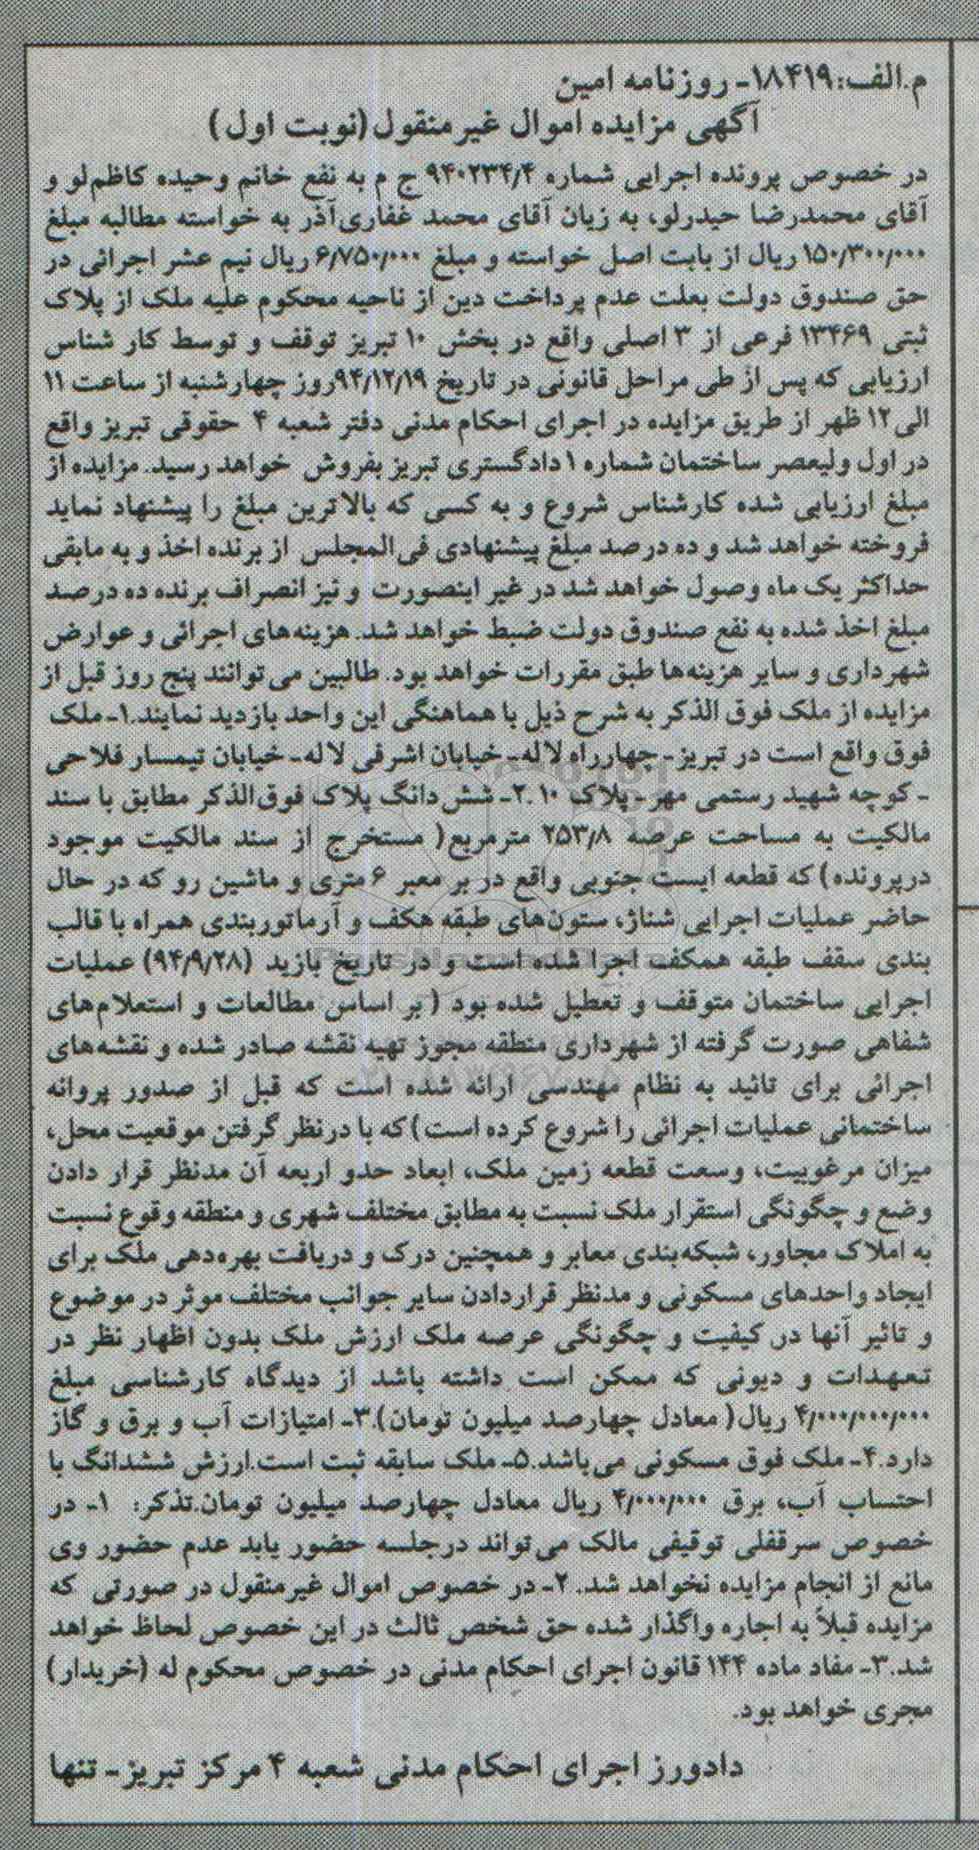 م.الف:۱۸۴۱۹- روزنامه امین
آگهی مزایده اموال غیرمنقول(نوبت اول)
در خصوص پرونده اجرایی شماره ۹۴۰۲۳۴/۴ج م به نفع خانم وحیده کاظم‌لو و
آقای محمدرضا حیدرلو، به زیان آقای محمد غفاری‌آذر به خواسته مطالبه مبلغ
۱۵۰/۳۰۰/۰۰۰ ریال از بابت اصل خواسته و مبلغ ۶/۷۵۰/۰۰۰ ریال نیم عشر اجرائی در
حق صندوق دولت بعلت عدم پرداخت دین از ناحیه محکوم علیه ملک از پلاک
ثبتی ۱۳۴۶۹ فرعی از ۳ اصلی واقع در بخش ۱۰ تبریز توقف و توسط کار شناس
ارزیابی که پس از طی مراحل قانونی در تاریخ ۹۴/۱۲/۱۹روز چهارشنبه از ساعت ۱۱
الی۱۲ ظهر از طریق مزایده در اجرای احکام مدنی دفتر شعبه ۴ حقوقی تبریز واقع
در اول ولیعصر ساختمان شماره ۱دادگستری تبریز بفروش خواهد رسید. مزایده از
مبلغ ارزیابی شده کارشناس شروع و به کسی که بالاترین مبلغ را پیشنهاد نماید
فروخته خواهد شد و ده درصد مبلغ پیشنهادی فی‌المجلس از برنده اخذ و به مابقی
حداکثر یک ماه وصول خواهد شد در غیر اینصورت و نیز انصراف برنده ده درصد
مبلغ اخذ شده به نفع صندوق دولت ضبط خواهد شد. هزینه‌های اجرائی و عوارض
شهرداری و سایر هزینه‌ها طبق مقررات خواهد بود. طالبین می‌توانند پنج روز قبل از
مزایده از ملک فوق الذکر به شرح ذیل با هماهنگی این واحد بازدید نمایند.۱-ملک
فوق واقع است در تبریز- چهارراه لاله- خیابان اشرفی لاله- خیابان تیمسار فلاحی
- کوچه شهید رستمی مهر- پلاک ۱۰ .۲- شش‌دانگ پلاک فوق‌الذکر مطابق با سند
مالکیت به مساحت عرصه ۲۵۳/۸ مترمربع( مستخرج از سند مالکیت موجود
درپرونده) که قطعه ایست جنوبی واقع در بر معبر ۶ متری و ماشین رو که در حال
حاضر عملیات اجرایی شناژ، ستون‌های طبقه هکف و آرماتوربندی همراه با قالب
بندی سقف طبقه همکف اجرا شده است و در تاریخ بازید (۹۴/۹/۲۸) عملیات
اجرایی ساختمان متوقف و تعطیل شده بود ( بر اساس مطالعات و استعلام‌های
شفاهی صورت گرفته از شهرداری منطقه مجوز تهیه نقشه صادر شده و نقشه‌های
اجرائی برای تائید به نظام مهندسی ارائه شده است که قبل از صدور پروانه
ساختمانی عملیات اجرائی را شروع کرده است) که با درنظر گرفتن موقعیت محل،
میزان مرغوبیت، وسعت قطعه زمین ملک، ابعاد حدو اربعه آن مدنظر قرار دادن
وضع و چگونگی استقرار ملک نسبت به مطابق مختلف شهری و منطقه وقوع نسبت
به املاک مجاور، شبکه‌بندی معابر و همچنین درک و دریافت بهره‌دهی ملک برای
ایجاد واحدهای مسکونی و مدنظر قراردادن سایر جوانب مختلف موثر در موضوع
و تاثیر آنها در کیفیت و چگونگی عرصه ملک ارزش ملک بدون اظهار نظر در
تعهدات و دیونی که ممکن است داشته باشد از دیدگاه کارشناسی مبلغ
۴/۰۰۰/۰۰۰/۰۰۰ ریال( معادل چهارصد میلیون تومان).۳- امتیازات آب و برق و گاز
دارد.۴- ملک فوق مسکونی می‌باشد.۵- ملک سابقه ثبت است.ارزش ششدانگ با
احتساب آب، برق ۴/۰۰۰/۰۰۰ ریال معادل چهارصد میلیون تومان.تذکر: ۱- در
خصوص سرقفلی توقیفی مالک می‌تواند درجلسه حضور یابد عدم حضور وی
مانع از انجام مزایده نخواهد شد. ۲- در خصوص اموال غیرمنقول در صورتی که
مزایده قبلاً به اجاره واگذار شده حق شخص ثالث در این خصوص لحاظ خواهد
شد.۳- مفاد ماده ۱۴۴ قانون اجرای احکام مدنی در خصوص محکوم له (خریدار)
مجری خواهد بود.
دادورز اجرای احکام مدنی شعبه ۴ مرکز تبریز- تنها